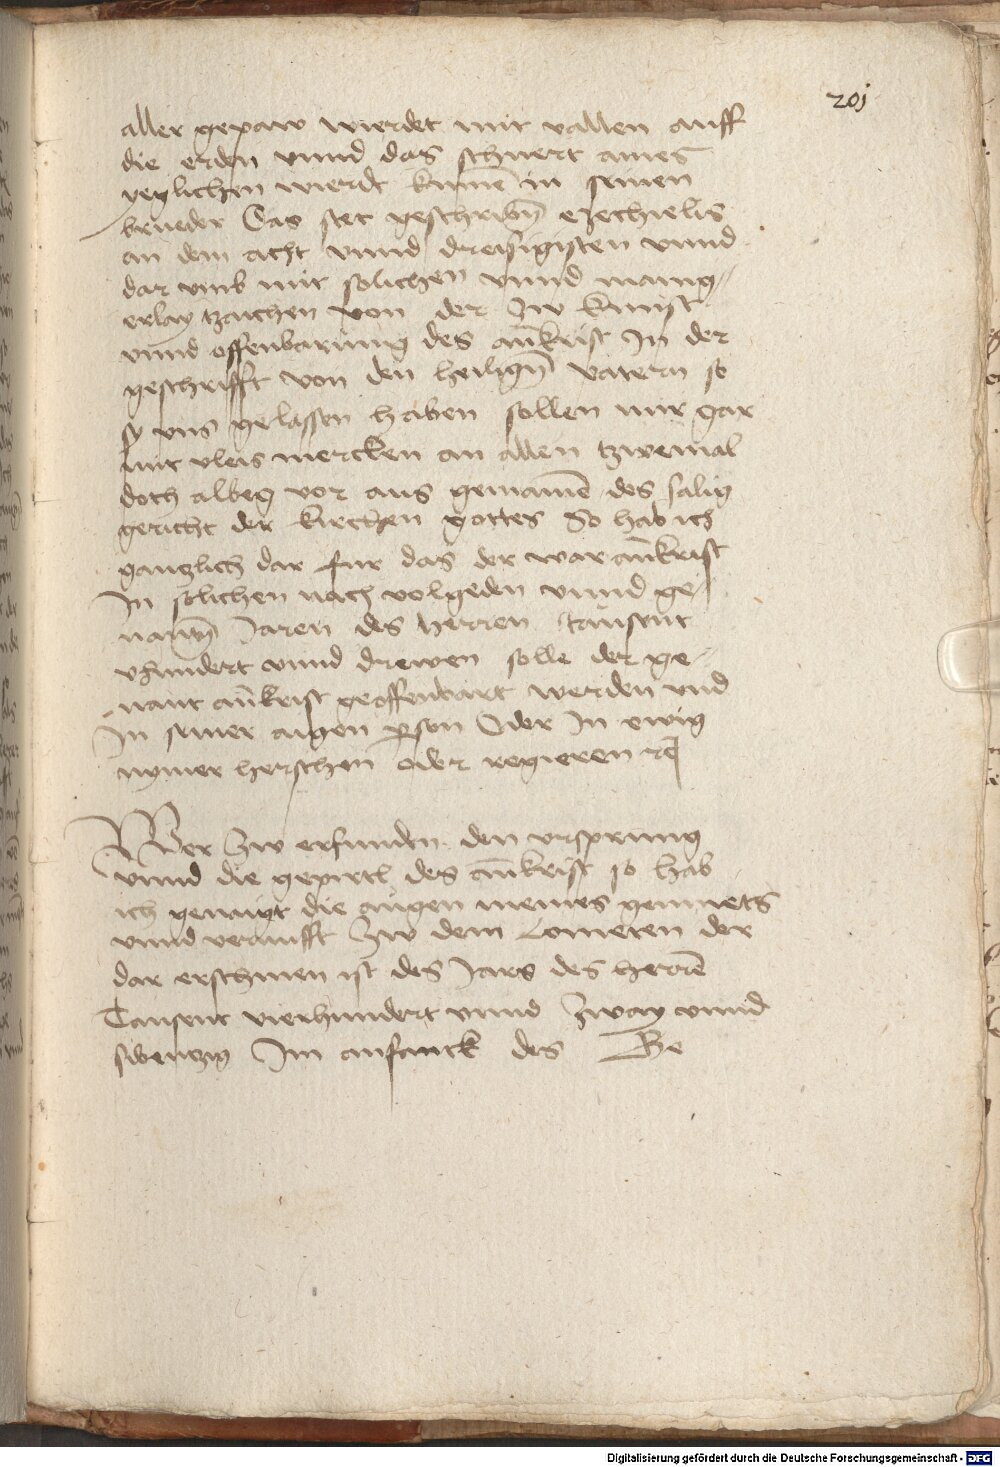 201
aller gepaw wierdet mit vallen auff
die erden vnnd das schwert aines
yeglichen wierdt kumē in seinen
brueder Das stet geschribn̄ ezechielis
an dem acht vnnd dreisigisten vnnd
dar vmb mit solichen vnnd manig⸗
erlay tzaichen von der zw kunst
vnnd offenbarung des ann̄krist In der
geschrifft von den heilign̄ vatern so
sy vns gelassen haben sollen mir gar
mit vleis mercken an allen tzweiual
doch albeg vor aus genamē des salig
gericht der kirchen gottes So hab ich
gantzlich dar fur das der war an̄krist
In solichen nach volgeden vnnd ge⸗
nantn̄ Jaren des herren tausent
vhundert vnnd drewen solle der ge⸗
nant an̄krist geoffenbart werden vnd
In seiner aigen person Oder In ewig
nymer herschen oder regieren rc
Wer zw erfunden den vrsprung
vnnd die gepirtt des an̄krist so hab
ich genaigt die augen meines gemuets
vnnd vernufft zw dem Cometen der
dar erschinen ist des Jars des herrē
Tausent vierhundert vnnd zway vnnd
sibentzig Im anfanck des Ge
Digitalisierung gefördert durch die Deutsche Forschungsgemeinschaft - DFG